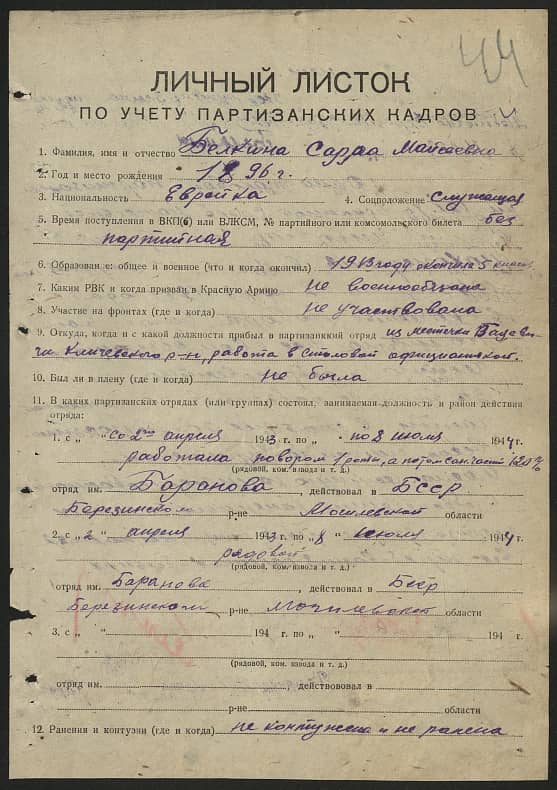 44
ЛИЧНЫЙ ЛИСТОК
ПО УЧЕТУ ПАРТИЗАНСКИХ КАДРОВ
1. Фамилия, имя и отчество Белкина Сарра Майсеевна
2. Год и место рождения 1896 г.
3. Национальность Еврейка 4. Соцположение Служащая
5. Время поступления в ВКП(б) или ВЛКСМ, № партийного или комсомольского билета без
партийная
6. Образование: общее и военное (что и когда окончил) 1913 году окончила 5 классов
7. Каким РВК и когда призван в Красную Армию не военнообязана
8. Участие на фронтах (где и когда) не участвовала
9. Откуда, когда и с какой должности прибыл в партизанский отряд из местечки
Кличевского р-н, работа в столовой официанткой.
10. Был ли в плену (где и когда) не была
11. В каких партизанских отрядах (или группах) состоял, занимаемая должность и район действия
отряда:
1. с „ “ со 2го апреля 1943 г. по „ по 8 июля 1944 г.
работала поваром 1 роты, а потом санчасти
(рядовой, ком. взвода и т. д.)
отряд им. Баранова, действовал в Бсср
Березинском р-не Могилевской области
2. с „2 апреля 1943 г. по „8 июля 1944
рядовой
(рядовой, ком. взвода и т. д.)
отряд им. Баранова действовал в Бсср
Березинском р-не Могилевской области
3. с „ “ 194 г. по „ “ 194 г.
(рядовой, ком. взвода и т. д.)
отряд им. , действововал в
р-не области
12. Ранения и контузии (где и когда) не контужена и не ранена